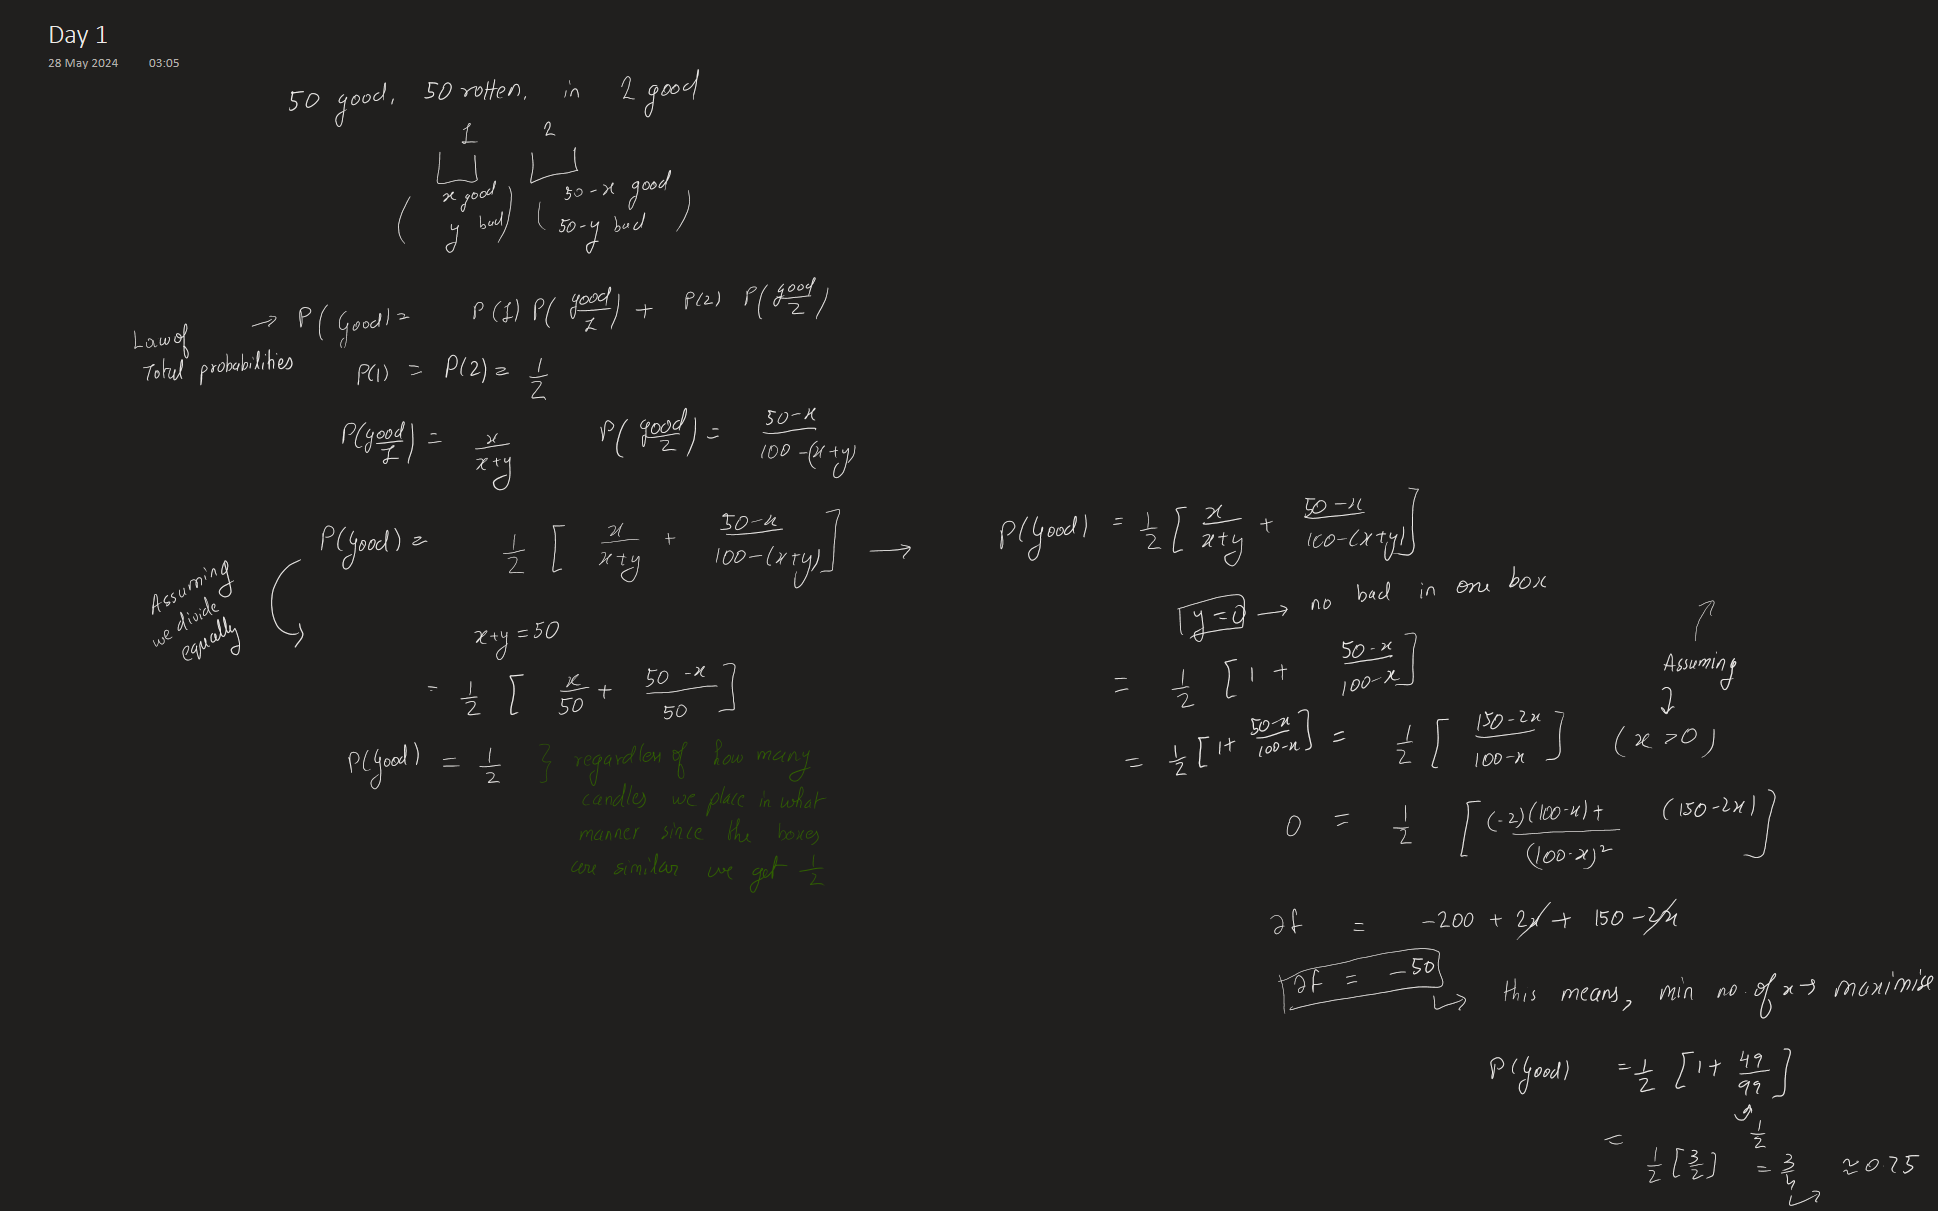 Day 1
28 May 2024 03:05
50 good, 50 rotten, in 2 good
1 2
x good 50-x good
( y bad) ( 50-y bad )
Law of Total probabilities → P(Good) = P(1) P(good/1) + P(2) P(good/2)
P(1) = P(2) = 1/2
P(good/1) = x/(x+y) P(good/2) = (50-x)/(100-(x+y))
P(Good) = 1/2 [ x/(x+y) + (50-x)/(100-(x+y)) ] →
Assuming
we divide
equally
x+y = 50
= 1/2 [ x/50 + (50-x)/50 ]
P(Good) = 1/2 } regardless of how many
candles we place in what
manner since the boxes
are similar we get 1/2
P(Good) = 1/2 [ x/(x+y) + (50-x)/(100-(x+y)) ]
y=0 → no bad in one box
= 1/2 [ 1 + (50-x)/(100-x) ]
Assuming
= 1/2 [ 1 + (50-x)/(100-x) ] = 1/2 [ (150-2x)/(100-x) ] (x>0)
0 = 1/2 [ (-2)(100-x) + (150-2x) / (100-x)² ]
∂f = -200 + 2x + 150 - 2x
∂f = -50
this means, min no. of x → maximise
P(Good) = 1/2 [ 1 + 49/99 ]
1/2
= 1/2 [3/2] = 3/4 ≈ 0.75